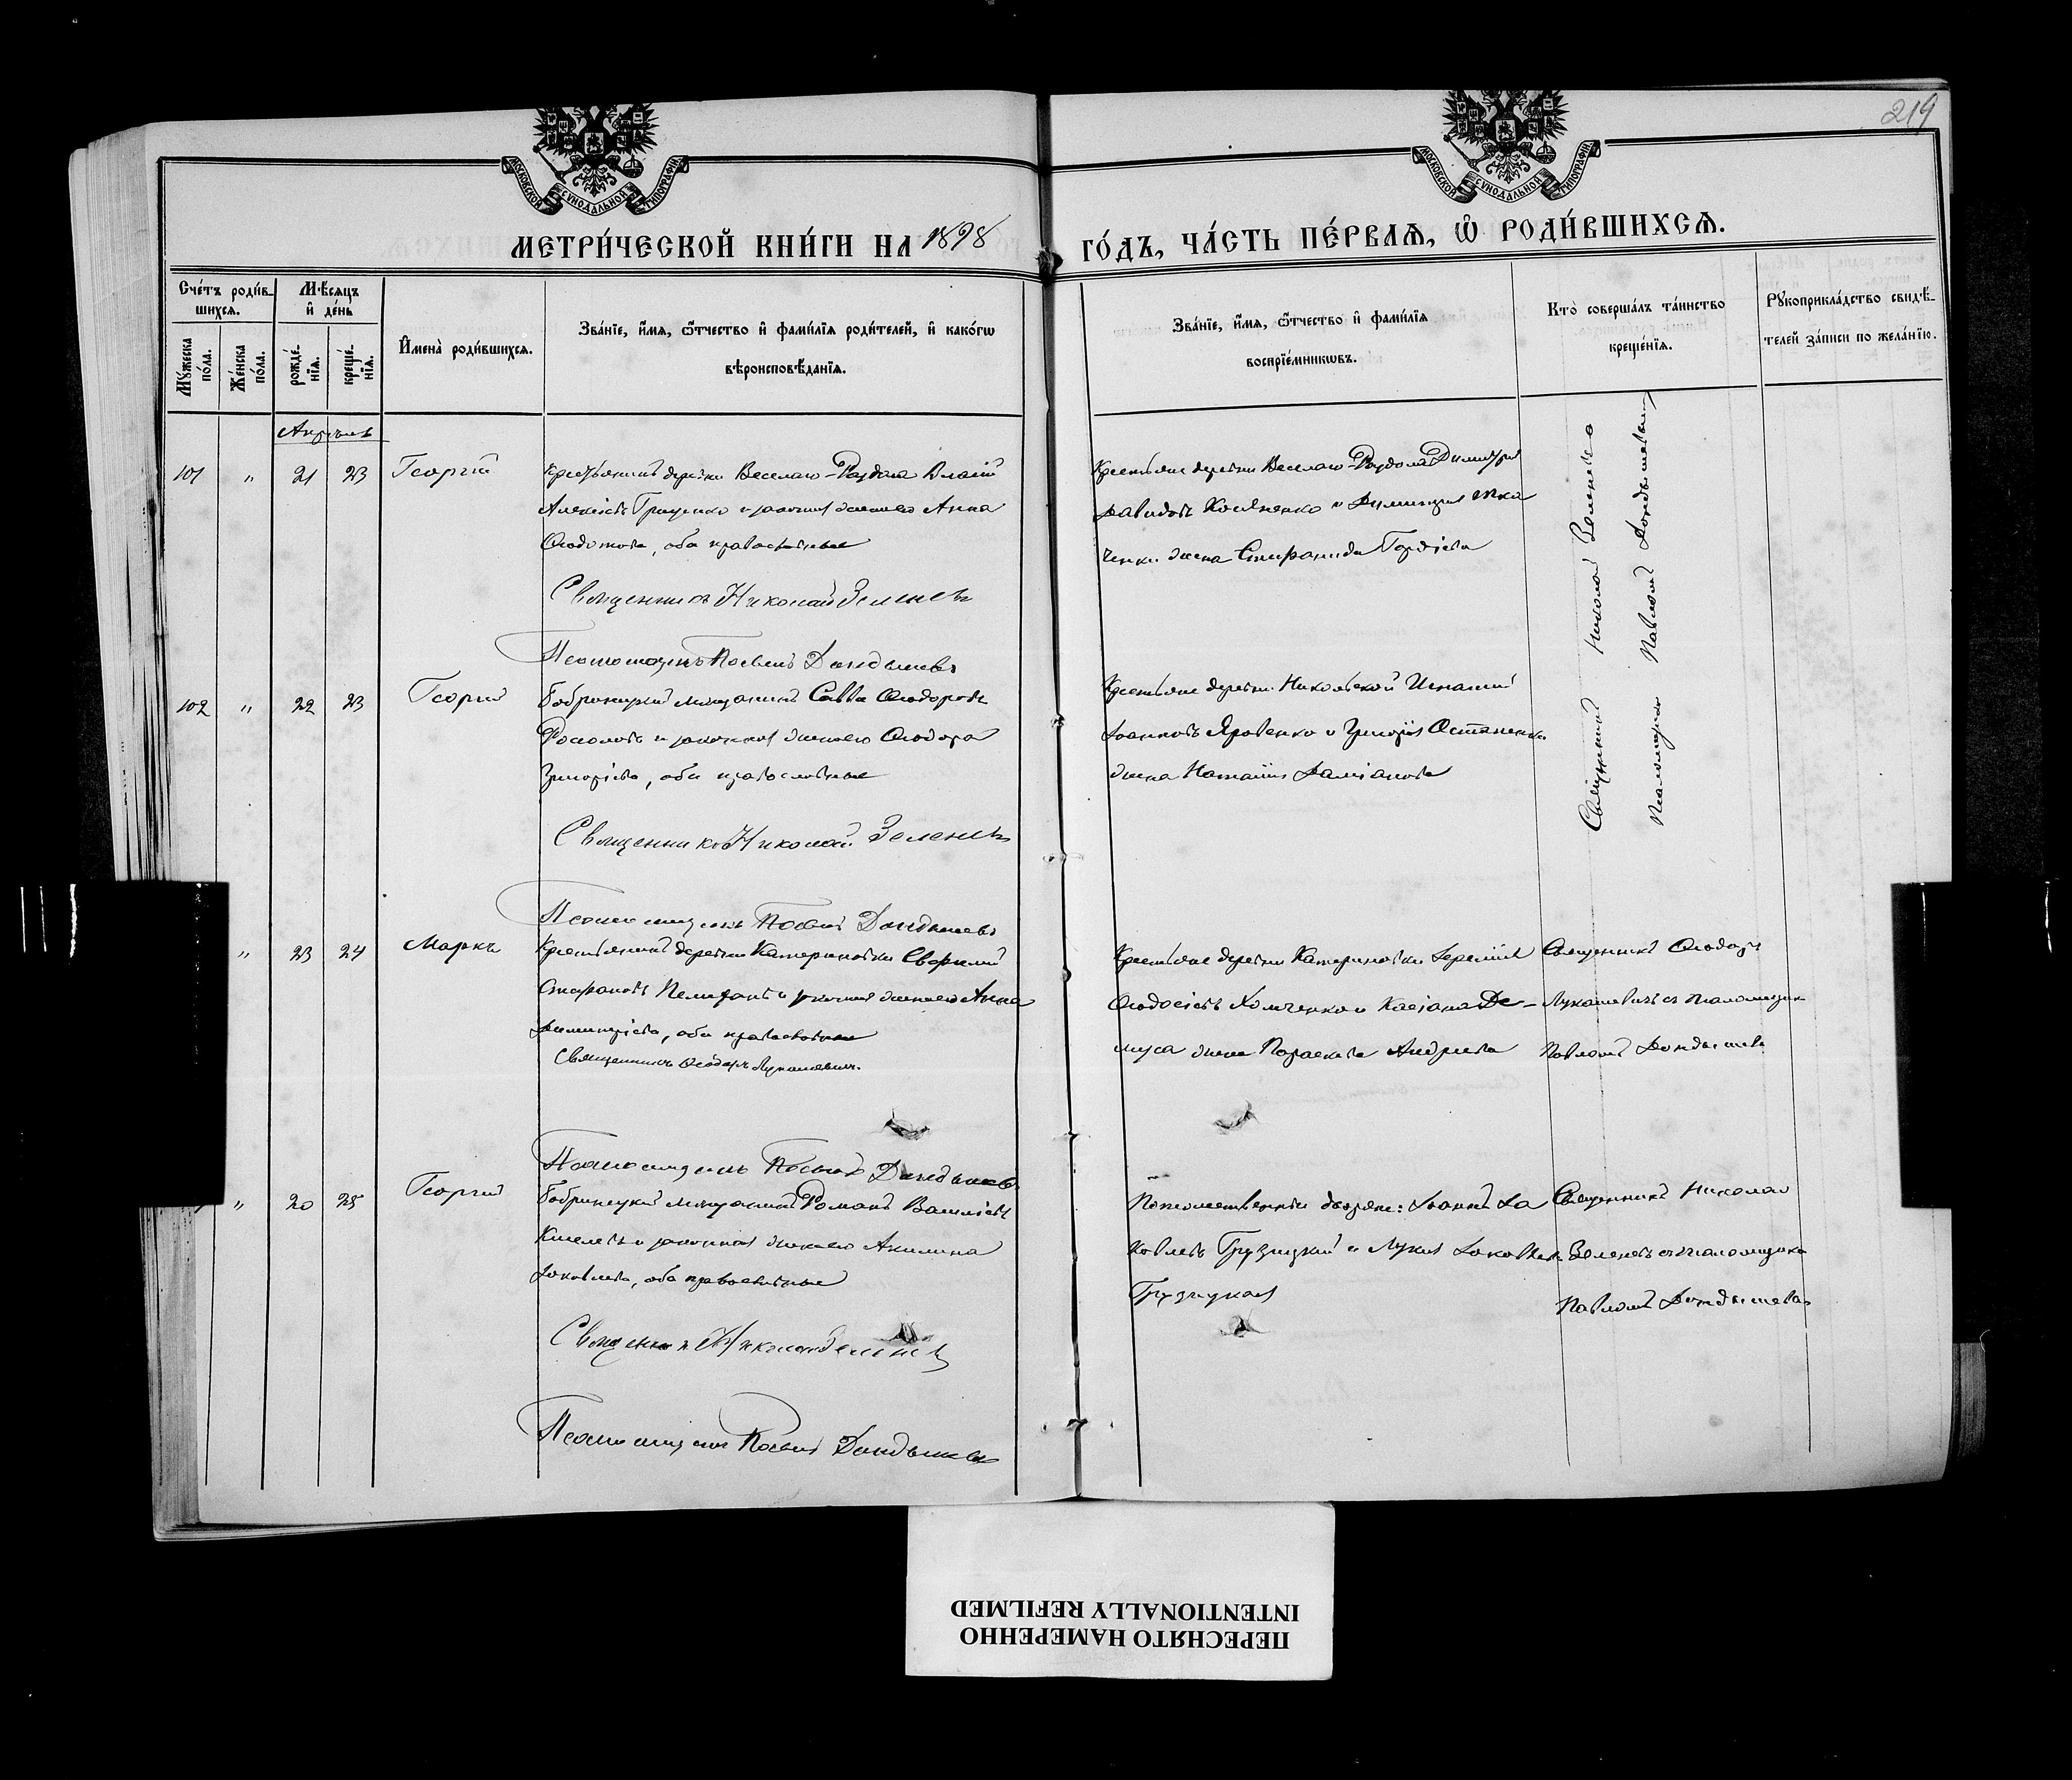 219
МОСКОВСКОЙ СѴНОДАЛЬНОЙ ТИПОГРАФІИ
МОСКОВСКОЙ СѴНОДАЛЬНОЙ ТИПОГРАФІИ
МЕТРИ́ЧЕСКОЙ КНИ́ГИ НА 1898
ГО́ДЪ, ЧА́СТЬ ПЕ́РВАѦ, Ѡ҆ РОДИ́ВШИХСѦ.
Сче́тъ роди́в-
шихся.
Мꙋ́жеска
по́ла.
Же́нска
по́ла.
Мѣ́сяцъ
и҆ де́нь
рожде́-
нїя.
креще́-
нїя.
И҆мена̀ роди́вшихся.
Зва́нїе, и҆́мя, ѻ҆́тчество и҆ фами́лїя роди́телей, и҆ како́гѡ
вѣроисповѣ́данїя.
Зва́нїе, и҆́мя, ѻ҆́тчество и҆ фами́лїя
воспрїе́мникѡвъ.
Кто̀ соверша́лъ та́инство
креще́нїя.
Рꙋкоприкла́дство свидѣ́-
телей за́писи по жела́нїю.
Апрѣль
101 " 21 23 Георгій
Крестьянинъ деревни Веселаго-Раздола Власій
Алексѣевъ Гриценко и законная жена его Анна
Ѳеодотова, оба православные
Священникъ Николай Зеленевъ
Псаломщикъ Павелъ Дондышевъ
Крестьяне деревни Веселаго-Раздола Димитрій
Давидовъ и Димитрія
жена Стефанида Гордіева
Священникъ Николай
Псаломщикъ Павломъ
102 " 22 23 Георгій
Бобринецкій мѣщанинъ Савва Ѳеодоровъ
и законная жена его Ѳеодора
Григорієва, оба православные
Священникъ Николай Зеленевъ
Псаломщикъ Павелъ Дондышевъ
Крестьяне деревни Никольской Игнатій
Іоанновъ Яровенко и Григорія Остапенка
жена Наталія Даміанова
" 23 24 Маркъ
Крестьянинъ деревни Катериновки Евфимій
Стефановъ и законная жена его Анна
Димитріева, оба православные
Священникъ Ѳеодоръ Лукашевичъ.
Псаломщикъ Павелъ Дондышевъ
Крестьяне деревни Катериновки Іеремія
Ѳеодосіевъ Хомченко и Касіана Де-
муса жена Параскева Андреева
Священникъ Ѳеодоръ
Лукашевичъ съ псаломщик.
Павломъ Дондышев.
" 20 25 Георгій
Бобринецкій мѣщанинъ Романъ Васильевъ
Киселевъ и законная жена его Акилина
Іаковлева, оба православные
Священникъ Николай Зеленевъ
Псаломщикъ Павелъ Дондышевъ
Потомственные дворяне: Іоаннъ Іа
ковлевъ Грузицкій и Лукія Іаковлева
Грузицкая
Священникъ Николай
Зеленевъ съ псаломщикомъ
Павломъ Дондышевымъ
ПЕРЕСНЯТО НАМЕРЕННО
INTENTIONALLY REFILMED